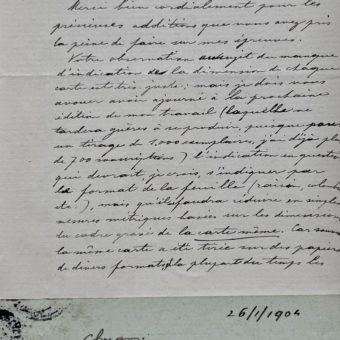 Merci bien cordialement pour les
précieuses additions que vous avez pris
la peine de faire sur mes épreuves.
Votre observation au sujet du manque
d'indication de la dimension de chaque
carte est très juste; mais je dois vous
avouer avoir ajourné à la prochaine
édition de mon travail (laquelle ne
tardera guères à se produire, puisque pour
un tirage de 1,000 exemplaires, j'ai déjà plus
de 700 inscriptions) l'indication en question
qui devrait, je crois, s'indiquer par
le format de la feuille (raisin, colombier
etc.), mais qu'il faudra réduire en simples
mesures métriques basées sur les dimensions
du cadre gravé de la carte même. Car souvent
la même carte a été tirée sur des papiers
de divers formats, la plupart du temps les
26/1/1904